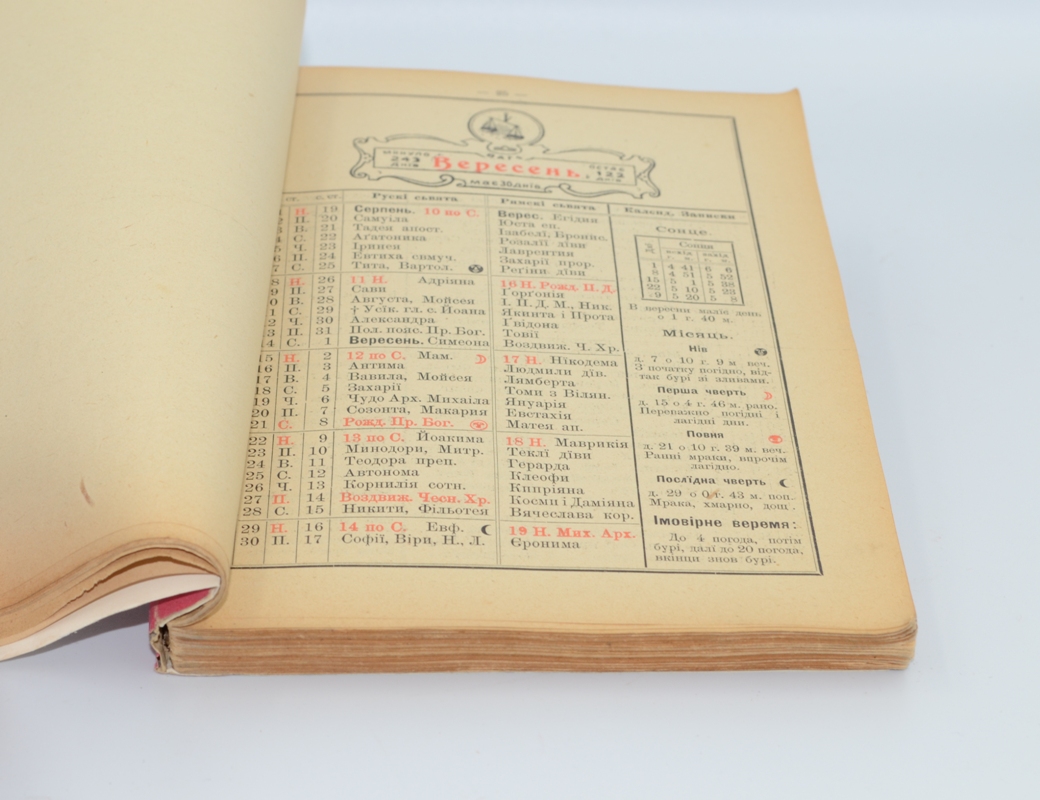 — 25 —
МИНУЛО 243 ДНІВ
Вересень,
має 30 днїв
122 днїв
ст. Рускі сьвята Римскі сьвята Календ. Записки
Н. 19 Серпень. 10 по С. Верес. Егідия
П. 20 Самуїла Юста еп.
3 В. 21 Тадея апост. Ізабелї, Броніс.
4 С. 22 Аґатоника Розалїї дїви
5 Ч. 23 Іринея Лаврентия
6 П. 24 Евтиха свмуч. Захариї прор.
7 С. 25 Тита, Вартол. Реґіни дїви
8 Н. 26 11 Н. Адріяна 16 Н. Рожд. П. Д.
9 П. 27 Сави Ґорґонїя
0 В. 28 Августа, Мойсея І. П. Д. М., Ник.
1 С. 29 † Усїк. гл. с. Йоана Якинта і Прота
2 Ч. 30 Александра Ґвідона
3 П. 31 Пол. пояс. Пр. Бог. Товії
4 С. 1 Вересень. Симеона Воздвиж. Ч. Хр.
15 Н. 2 12 по С. Мам. 17 Н. Нїкодема
16 П. 3 Антима Людмили дїв.
17 В. 4 Вавила, Мойсея Лямберта
18 С. 5 Захарії Томи з Вілян.
19 Ч. 6 Чудо Арх. Михаіла Януарія
20 П. 7 Созонта, Макария Евстахія
21 С. 8 Рожд. Пр. Бог. Матея ап.
22 Н. 9 13 по С. Йоакима 18 Н. Маврикія
23 П. 10 Минодори, Митр. Теклї дїви
24 В. 11 Теодора преп. Герарда
25 С. 12 Автонома Клеофи
26 Ч. 13 Корнилія сотн. Кипріяна
27 П. 14 Воздвиж. Чесн. Хр. Косми і Даміяна
28 С. 15 Никити, Фільотея Вячеслава кор.
29 Н. 16 14 по С. Евф. 19 Н. Мих. Арх.
30 П. 17 Софії, Віри, Н., Л. Єронима
Сонце.
Сонця
всхід захід
г. м. г. м.
1 4 41 6 6
8 4 51 5 52
15 5 1 5 38
22 5 10 5 23
29 5 20 5 8
В вересни маліє день
о 1 г. 40 м.
Місяць.
Нів
д. 7 о 10 г. 9 м. веч.
З початку погідно, від-
так бурі зі зливами.
Перша чверть
д. 15 о 4 г. 46 м. рано.
Переважно погідні і
лагідні дни.
Повня
д. 21 о 10 г. 39 м. веч.
Ранні мраки, впрочім
лагідно.
Послїдна чверть
д. 29 о 0 г. 43 м. поп.
Мрака, хмарно, дощ.
Імовірне веремя:
До 4 погода, потім
бурі, далї до 20 погода,
вкінци знов бурі.